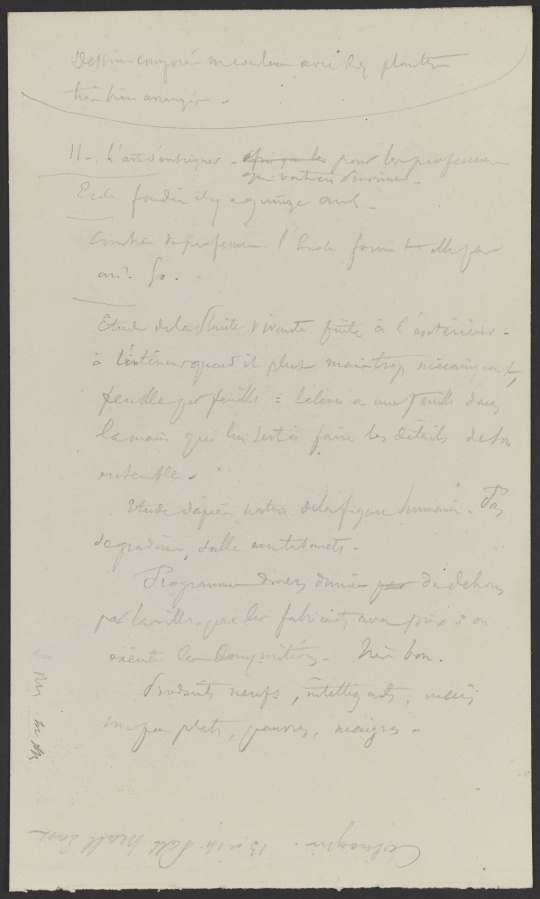 Dessin composé en couleur avec des plantes
très bien arrangées.
II - L'art d'enseigner - pour les professeurs
qui vont en
Ecole fondée il y a quinze ans.
Combien de professeurs l'Ecole forme t elle par
an? 50.
Etude de la Plante vivante faite à l'extérieur -
à l'intérieur quand il pleut mais trop mécaniquement,
feuille par feuille : l'élève a une feuille dans
la main qui lui sert à faire les détails de son
ensemble.
Etude d'après nature de la figure humaine. Pas
de gradins, salle avec tabourets.
Programmes divers donnés par du dehors
par la ville, par les fabricants avec prix : on
exécute les Compositions. Très bon.
Produits neufs, intelligents, mais
un peu plats, pauvres, maigres.
13 Pall Mall East